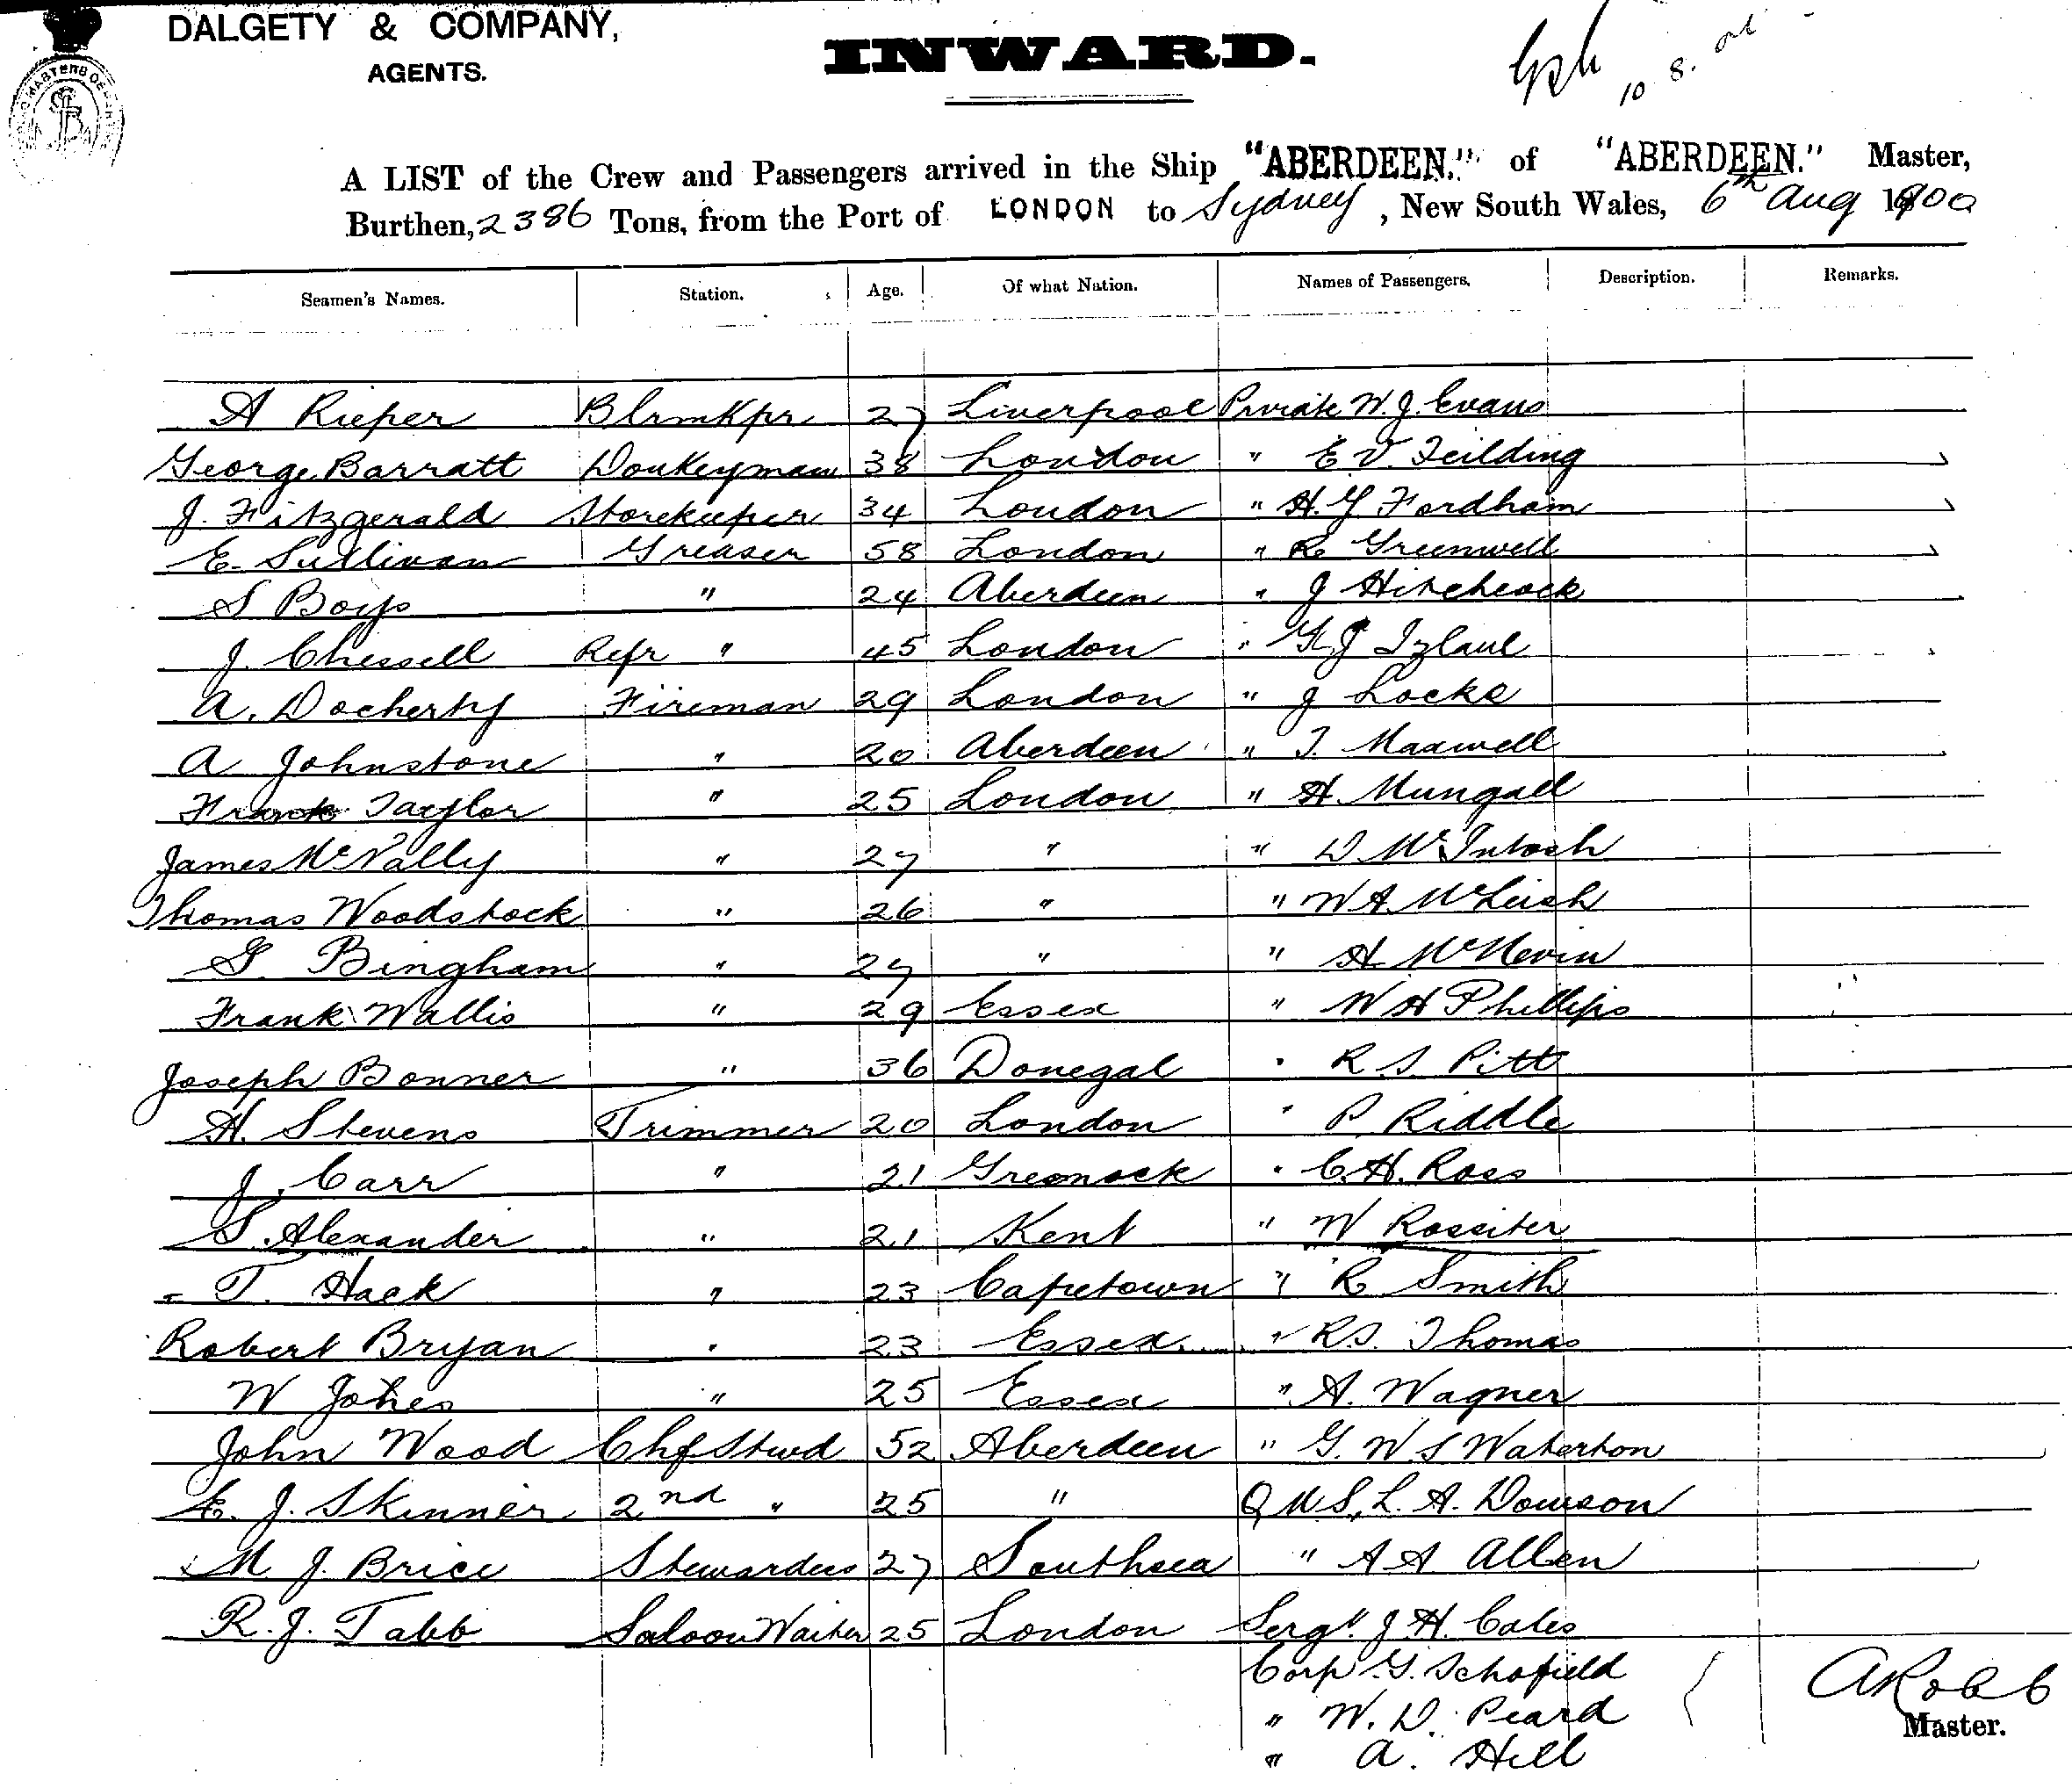 DALGETY & COMPANY,
AGENTS.
INWARD.
10. 8.
A LIST of the Crew and Passengers arrived in the Ship "ABERDEEN." of "ABERDEEN." Master,
Burthen, 2386 Tons, from the Port of LONDON to Sydney, New South Wales, 6th Aug 1900
Seamen's Names. Station. Age. Of what Nation. Names of Passengers. Description. Remarks.
A Rieper Blrmkpr 27 Liverpool Private W. J. Evans
George Barratt Donkeyman 38 London " E V. Feilding
J. Fitzgerald Storekeeper 34 London " H. Y Fordham
E. Sullivan Greaser 58 London " R Greenwell
S Boys " 24 Aberdeen " J Hitchcock
J. Chessell Refr " 45 London "
A. Docherty Fireman 29 London " J Locke
A Johnstone " 20 Aberdeen " T. Maxwell
Frank Taylor " 25 London " H. Mungall
James McNally " 27 " " D McIntosh
Thomas Woodstock " 26 " " W A McLeish
G. Bingham " 27 " " H McNevin
Frank Wallis " 29 Essex " W H Phillips
Joseph Bonner " 36 Donegal " R. S. Pitt
H. Stevens Trimmer 20 London " P. Riddle
J. Carr " 21 Greenock " C. H. Ross
S. Alexander " 21 Kent " W Rossiter
T. Hack " 23 Capetown " R Smith
Robert Bryan " 23 Essex " R. S. Thomas
W Jones " 25 Essex " A. Wagner
John Wood Chf Stwd 52 Aberdeen " G. W. S Waterton
E. J. Skinner 2nd " 25 " Q M S, L. A. Dowson
M. J. Brice Stewardess 27 Southsea " A A Allen
R. J. Tabb Saloon Waiter 25 London Sergt. J. H. Coles
Corp G. Schofield
" W. D. Peard
" A. Hill
A Robb
Master.